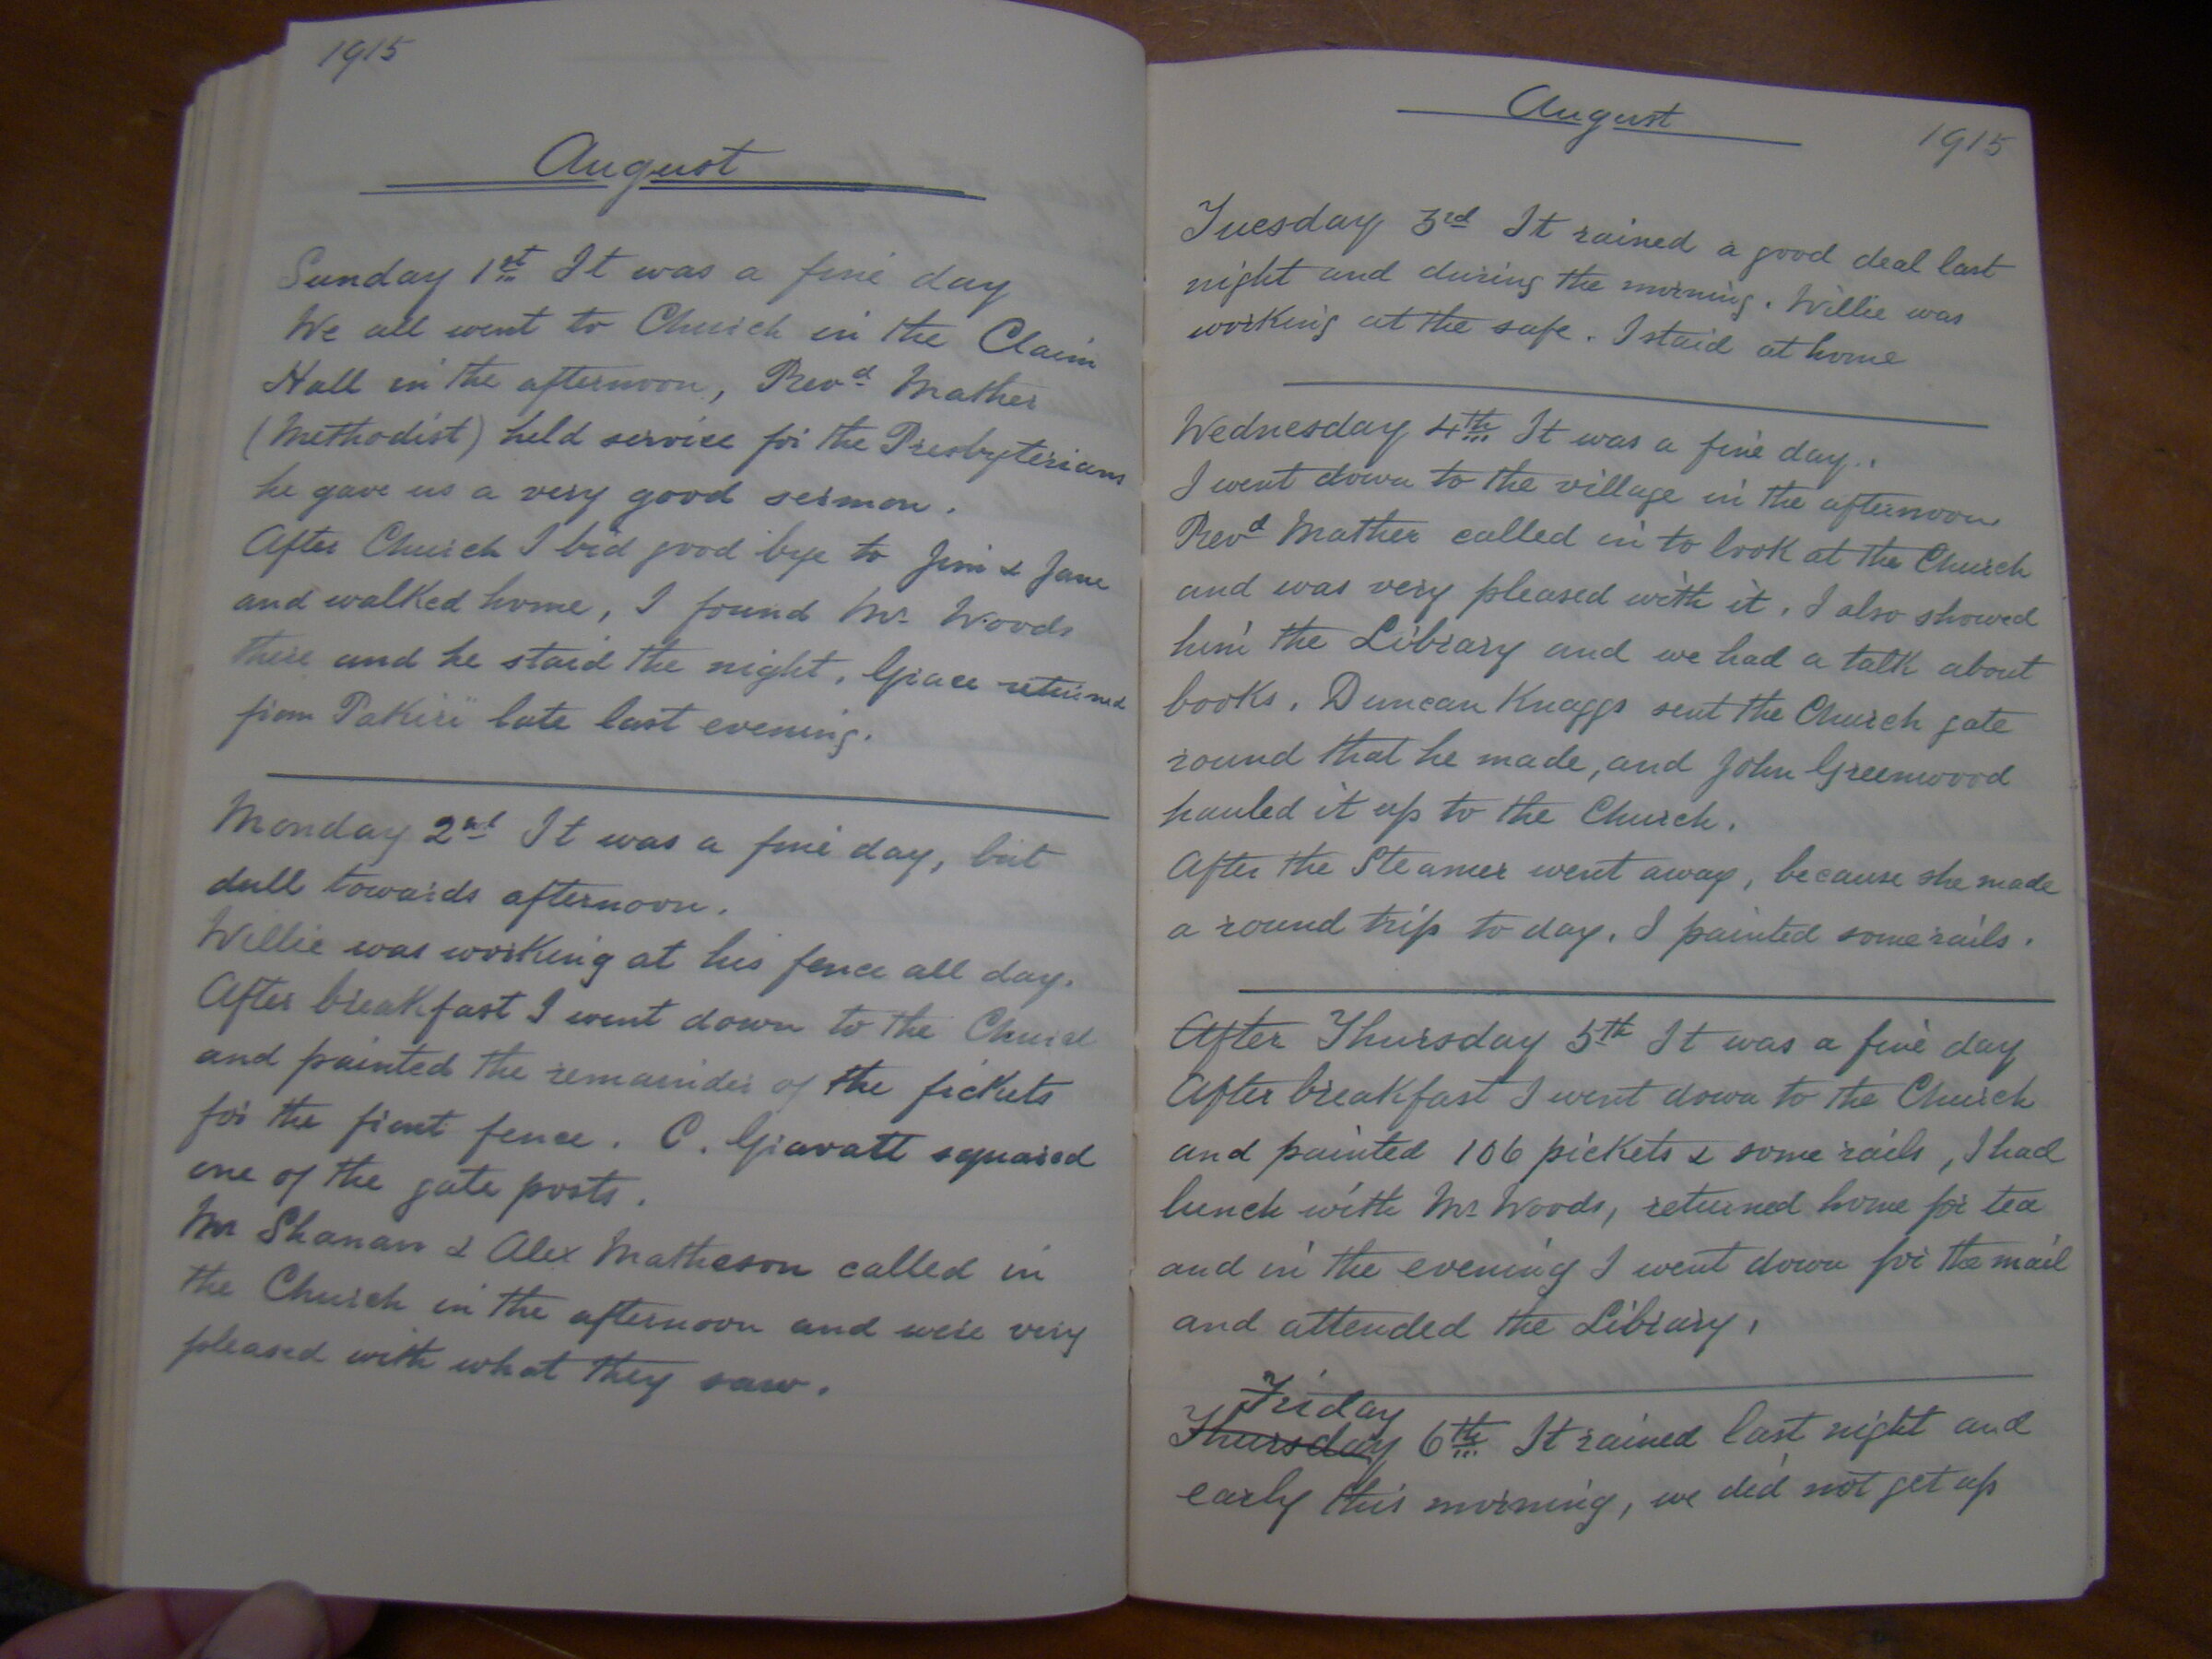 1915
August
Sunday 1st It was a fine day
We all went to Church in the Claim
Hall in the afternoon, Revd Mather
(Methodist) held service for the Presbyterians
he gave us a very good sermon.
After Church I bid good bye to Jim & Jane
and walked home, I found Mr Woods
there and he staid the night. Grace returned
from Pakiri late last evening.
Monday 2nd It was a fine day, but
dull towards afternoon.
Willie was working at his fence all day.
After breakfast I went down to the Church
and painted the remainder of the pickets
for the front fence. C. Gravatt squared
one of the gate posts.
Mr Shanan & Alex Matheson called in
the Church in the afternoon and were very
pleased with what they saw.
August
1915
Tuesday 3rd It rained a good deal last
night and during the morning. Willie was
working at the safe. I staid at home
Wednesday 4th It was a fine day..
I went down to the village in the afternoon
Revd Mather called in to look at the Church
and was very pleased with it. I also showed
him the Library and we had a talk about
books. Duncan Knaggs sent the Church gate
round that he made, and John Greenwood
hauled it up to the Church.
After the Steamer went away, because she made
a round trip to day. I painted some rails.
After Thursday 5th It was a fine day
After breakfast I went down to the Church
and painted 106 pickets & some rails, I had
lunch with Mr Woods, returned home for tea
and in the evening I went down for the mail
and attended the Library.
Friday
Thursday 6th It rained last night and
early this morning, we did not get up